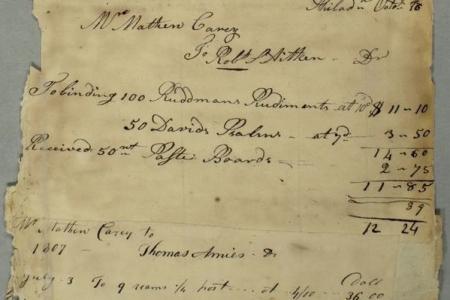 Philada Octor 18
Mr Mathew Carey
To Robt Aitken - Dr
To binding 100 Ruddmans Rudiments at 10d $ 11-10
50 Davids Psalms - at 7d - 3-50
14-60
Received 50 wt Paste Boards 2-75
11-85
39
12 24
Mr Mathew Carey to
1807 Thomas Amies Dr
Doll
July 3 To 9 reams 1/4 post at 4/10 36.00